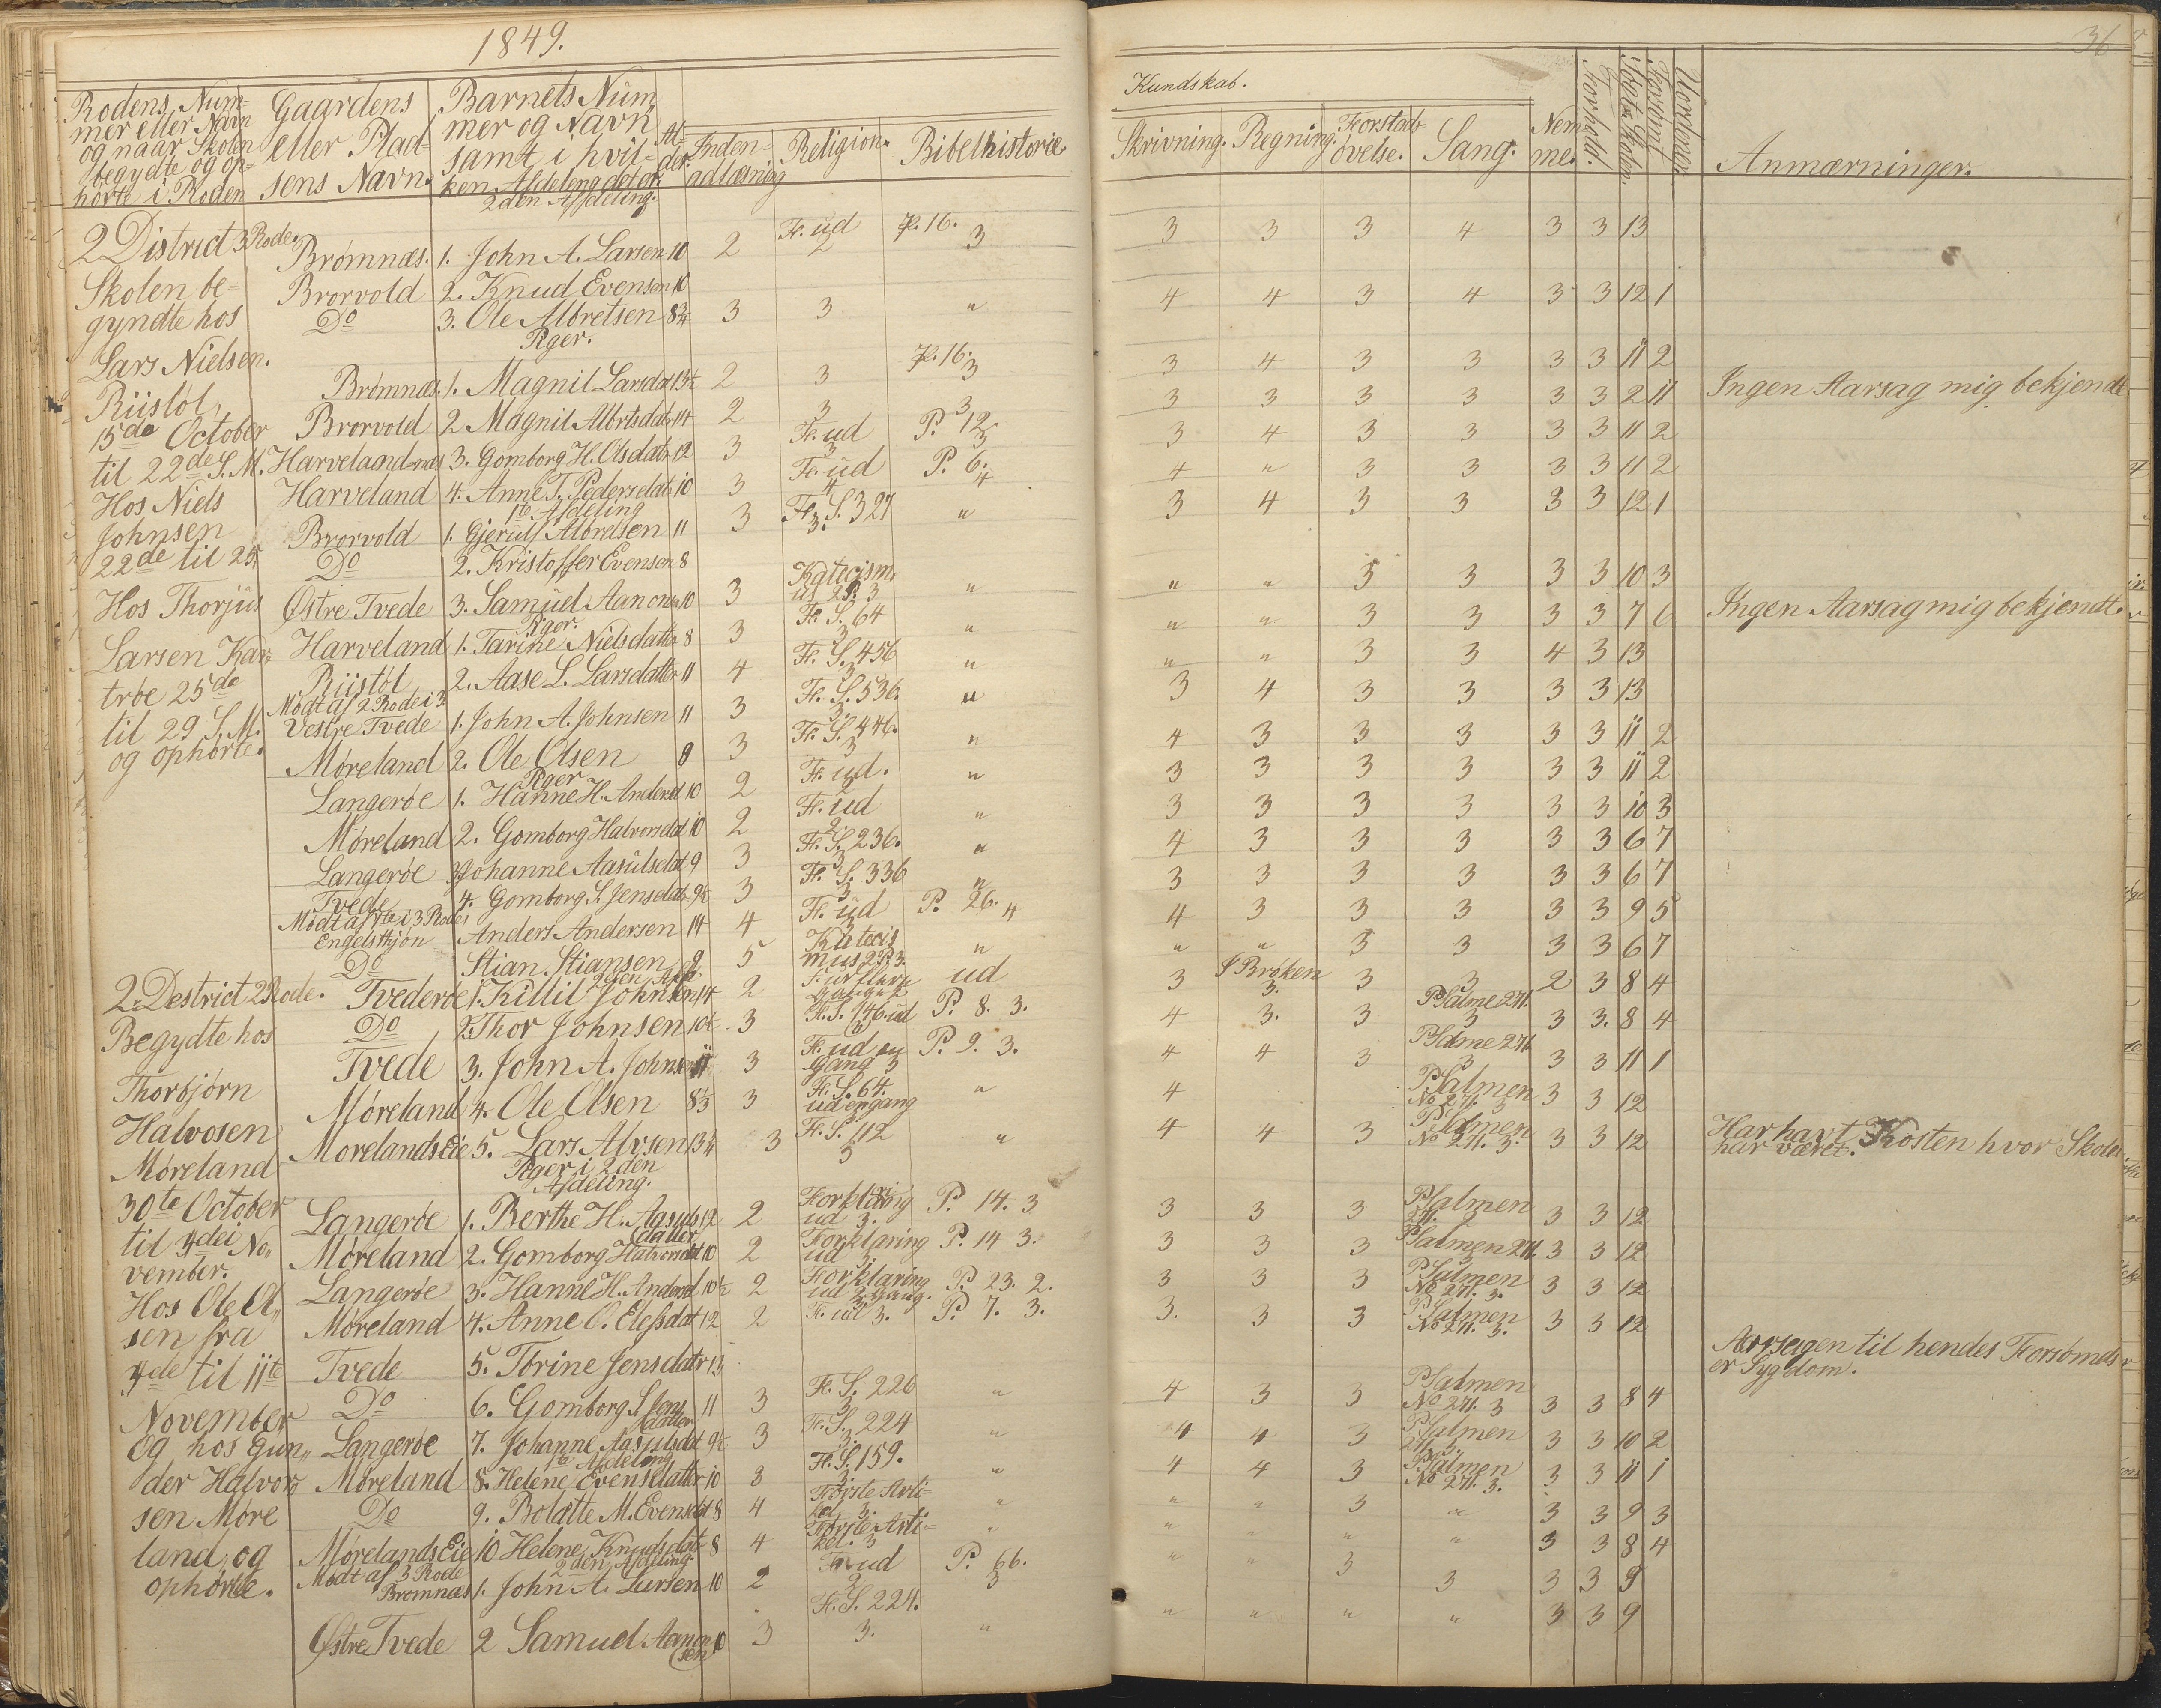 1849.
36
Rodens Num-
mer eller Navn
og naar Skolen
begydte og op-
hørte i Roden
Gaardens
eller Plad-
sens Navn.
Barnets Num
mer og Navn
samt i hvil-
ken Afdeling det er.
Al-
der.
Inden-
adlæsning
Religion.
Bibelhistorie.
Kundskab.
Skrivning. Regning. Forstads
øvelse. Sang. Nem
me. Forhold. Søgt Skolen. Forsømt Uordener.
Anmærninger.
2den Afdeling.
2 District 3 Rode. Brømnæs. 1. John A. Larsen 10 2 Fr. ud 2 P. 16. 3 3 3 3 4 3 3 13
Skolen be= Brorvold 2. Knud Evensen 10
gyndte hos Do 3. Ole Albretsen 8¾ 3 3 " 4 4 3 4 3 3 12 1
Piger.
Lars Nielsen. Brømnæs. 1. Magnil Larsdat 13½ 2 3 P. 16. 3 3 4 3 3 3 3 11 2
Riistøl, Brorvold 2 Magnil Albrtsdatr 14 2 3 3 3 3 3 3 3 3 2 11 Ingen Aarsag mig bekjendt
15de October
til 22de S. M. Harveland=næs 3. Gomborg H. Olsdatr 12 3 Fr. ud 3 P. 12. 3 3 4 3 3 3 3 11 2
Hos Niels Harveland 4. Anne T. Pedersdatr 10 3 Fr. ud 4 P. 6. 4 4 " 3 3 3 3 11 2
1te Afdeling
Johnsen Brorvold 1. Gjerulf Albretsen 11 3 Fr. S. 327 3. " 3 4 3 3 3 3 12 1
22de til 25. Do 2. Kristoffer Evensen 8
Hos Thorjus Østre Tvede 3. Samuel Aanonsen 10 3 Katecism.
us 2P. 3 " " " 3 3 3 3 10 3
Piger.
Larsen Kar= Harveland 1. Tarine Nielsdatter 8 3 Fr. S. 64 3 " " " 3 3 3 3 7 6 Ingen Aarsag mig bekjendt.
trøe 25de Riistøl 2. Aase L. Larsdatter 11 4 Fr. S. 456 3 " " " 3 3 4 3 13
Mødt af 2 Rode i 3.
til 29 S. M. Vestre Tvede 1. John A. Johnsen 11 3 Fr. S. 536. 3 " 3 4 3 3 3 3 13
og ophørte. Møreland 2. Ole Olsen 9 3 Fr. S. 446. 3 " 4 3 3 3 3 3 11 2
Piger
Langerøe 1. Hanne H. Andersd 10 2 Fr. ud. 2 " 3 3 3 3 3 3 11 2
Møreland 2. Gomborg Halvorsdat 10 2 Fr. ud 2 " 3 3 3 3 3 3 10 3
Langerøe 3. Johanne Aasulsdat 9 3 Fr. S. 236. 3 " 4 3 3 3 3 3 6 7
Tvede 4. Gomborg S. Jensdatr 9½ 3 Fr. S. 336 3 " 3 3 3 3 3 3 6 7
Mødt af 1te i 3 Rode
Engelstkjøn Anders Andersen 14 4 Fr. ud 3 P. 26. 4 4 3 3 3 3 3 9 5
Do Stian Stiansen 9 5 Katecis
mus 2P3. " " " 3 3 3 3 6 7
2den Afd.
2. Destrict 2 Rode. Tvederøe 1. Killil Johnsen 14 2 ud 3 I Brøken 3. 3 3 2 3 8 4
Begydte hos Do 2. Thor Johnsen 10½ 3 Fr. S. 146. ud P. 8. 3. 4 3. 3 PSalme 271. 3 3 3. 8 4
Thorbjørn Tvede 3. John A. Johnsen 11 3 Fr. ud en
Gang 3 P. 9. 3. 4 4 3 PSalme 271. 3 3 3 11 1
Møreland 4. Ole Olsen 8⅓ 3 Fr. S. 64.
ud engang " 4 PSalmen
No 271. 3 3 3 12
Halvosen Morelands Eie 5. Lars Alvsen 13¼ 3 Fr. S. 112 3 " 4 4 3 PSalmen
No 271. 3. 3 3 12 Har havt Kosten hvor Skolen
har været.
Møreland
Piger i 2den
Afdeling.
30te October Langerøe 1. Berthe H. Aasuls
datter 12 2 Forklaring
ud 3. P. 14. 3 3 3 3 PSalmen
271. 3 3 3 12
til 4de No„ Møreland 2. Gomborg Halvorsdat 10 2 Forklaring
ud 3. P. 14 3. 3 3 3 PSalmen 271. 3 3 3 12
vember. Langerøe 3. Hanne H. Andersd 10½ 2 Forklaring
ud 2 Gang. P. 23. 2. 3 3 3 PSalmen
No 271. 3. 3 3 12
Hos Ole Ol„ Møreland 4. Anne O. Elefsdat 12 2 Fr. ud 3. P. 7. 3. 3. 3 3 PSalmen
No 271. 3. 3 3 12
sen fra
4de til 11te Tvede 5. Torine Jensdatr 13 Aarsagen til hendes Forsømelse
er Sygdom.
November Do 6. Gomborg S. Jens
datter 11 3 Fr. S. 226 3 " 4 3 3 PSalmen
No 271. 3 3 3 8 4
og hos Gun„ Langerøe 7. Johanne Aasulsdat 9½ 3 Fr. S. 224 3. " 4 4 3 PSalmen
271. 3. 3 3 10 2
1te Afdeling
der Halvor„ Møreland 8. Helene Evensdatter 10 3 Fr. S. 159. 3 " 4 4 3 PSalmen
No 271. 3. 3 3 11 1
sen Møre Do 9. Bolatte M. Evensdat 8 4 Første Arti=
kel 3. " " " 3 " 3 3 9 3
land og Mørelands Eie 10 Helene Knudsdatr 8 4 Første Arti=
kel. 3 " " " " " 3 3 8 4
Mødt af 3 Rode 2den Afdeling.
ophørte. Brømnæs 1. John A. Larsen 10 2 Fr. ud 2 P. 66. 3 " " 3 3 3 3 9
Østre Tvede 2 Samuel Aanon
sen 10 3 Fr. S. 224. 3. " " " " " 3 3 9